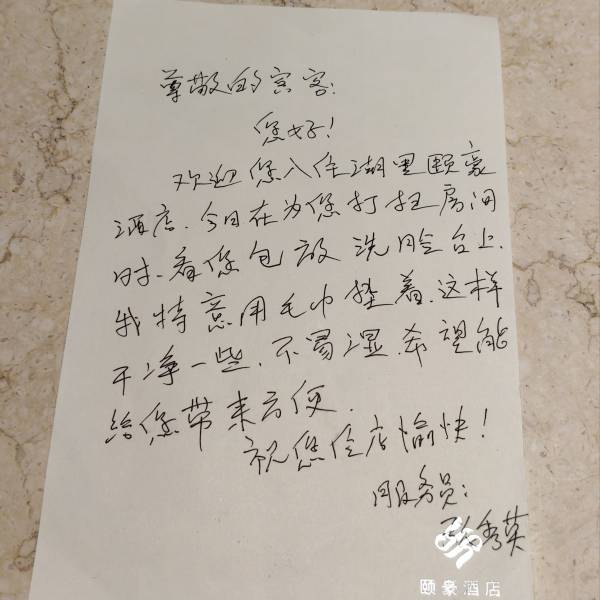 尊敬的宾客:
您好!
欢迎您入住湖里颐豪
酒店.今日在为您打扫房间
时.看您包放洗脸台上.
我特意用毛巾垫着.这样
干净一些.不易湿.希望能
给您带来方便.
祝您住店愉快!
服务员:
张秀英
颐豪酒店